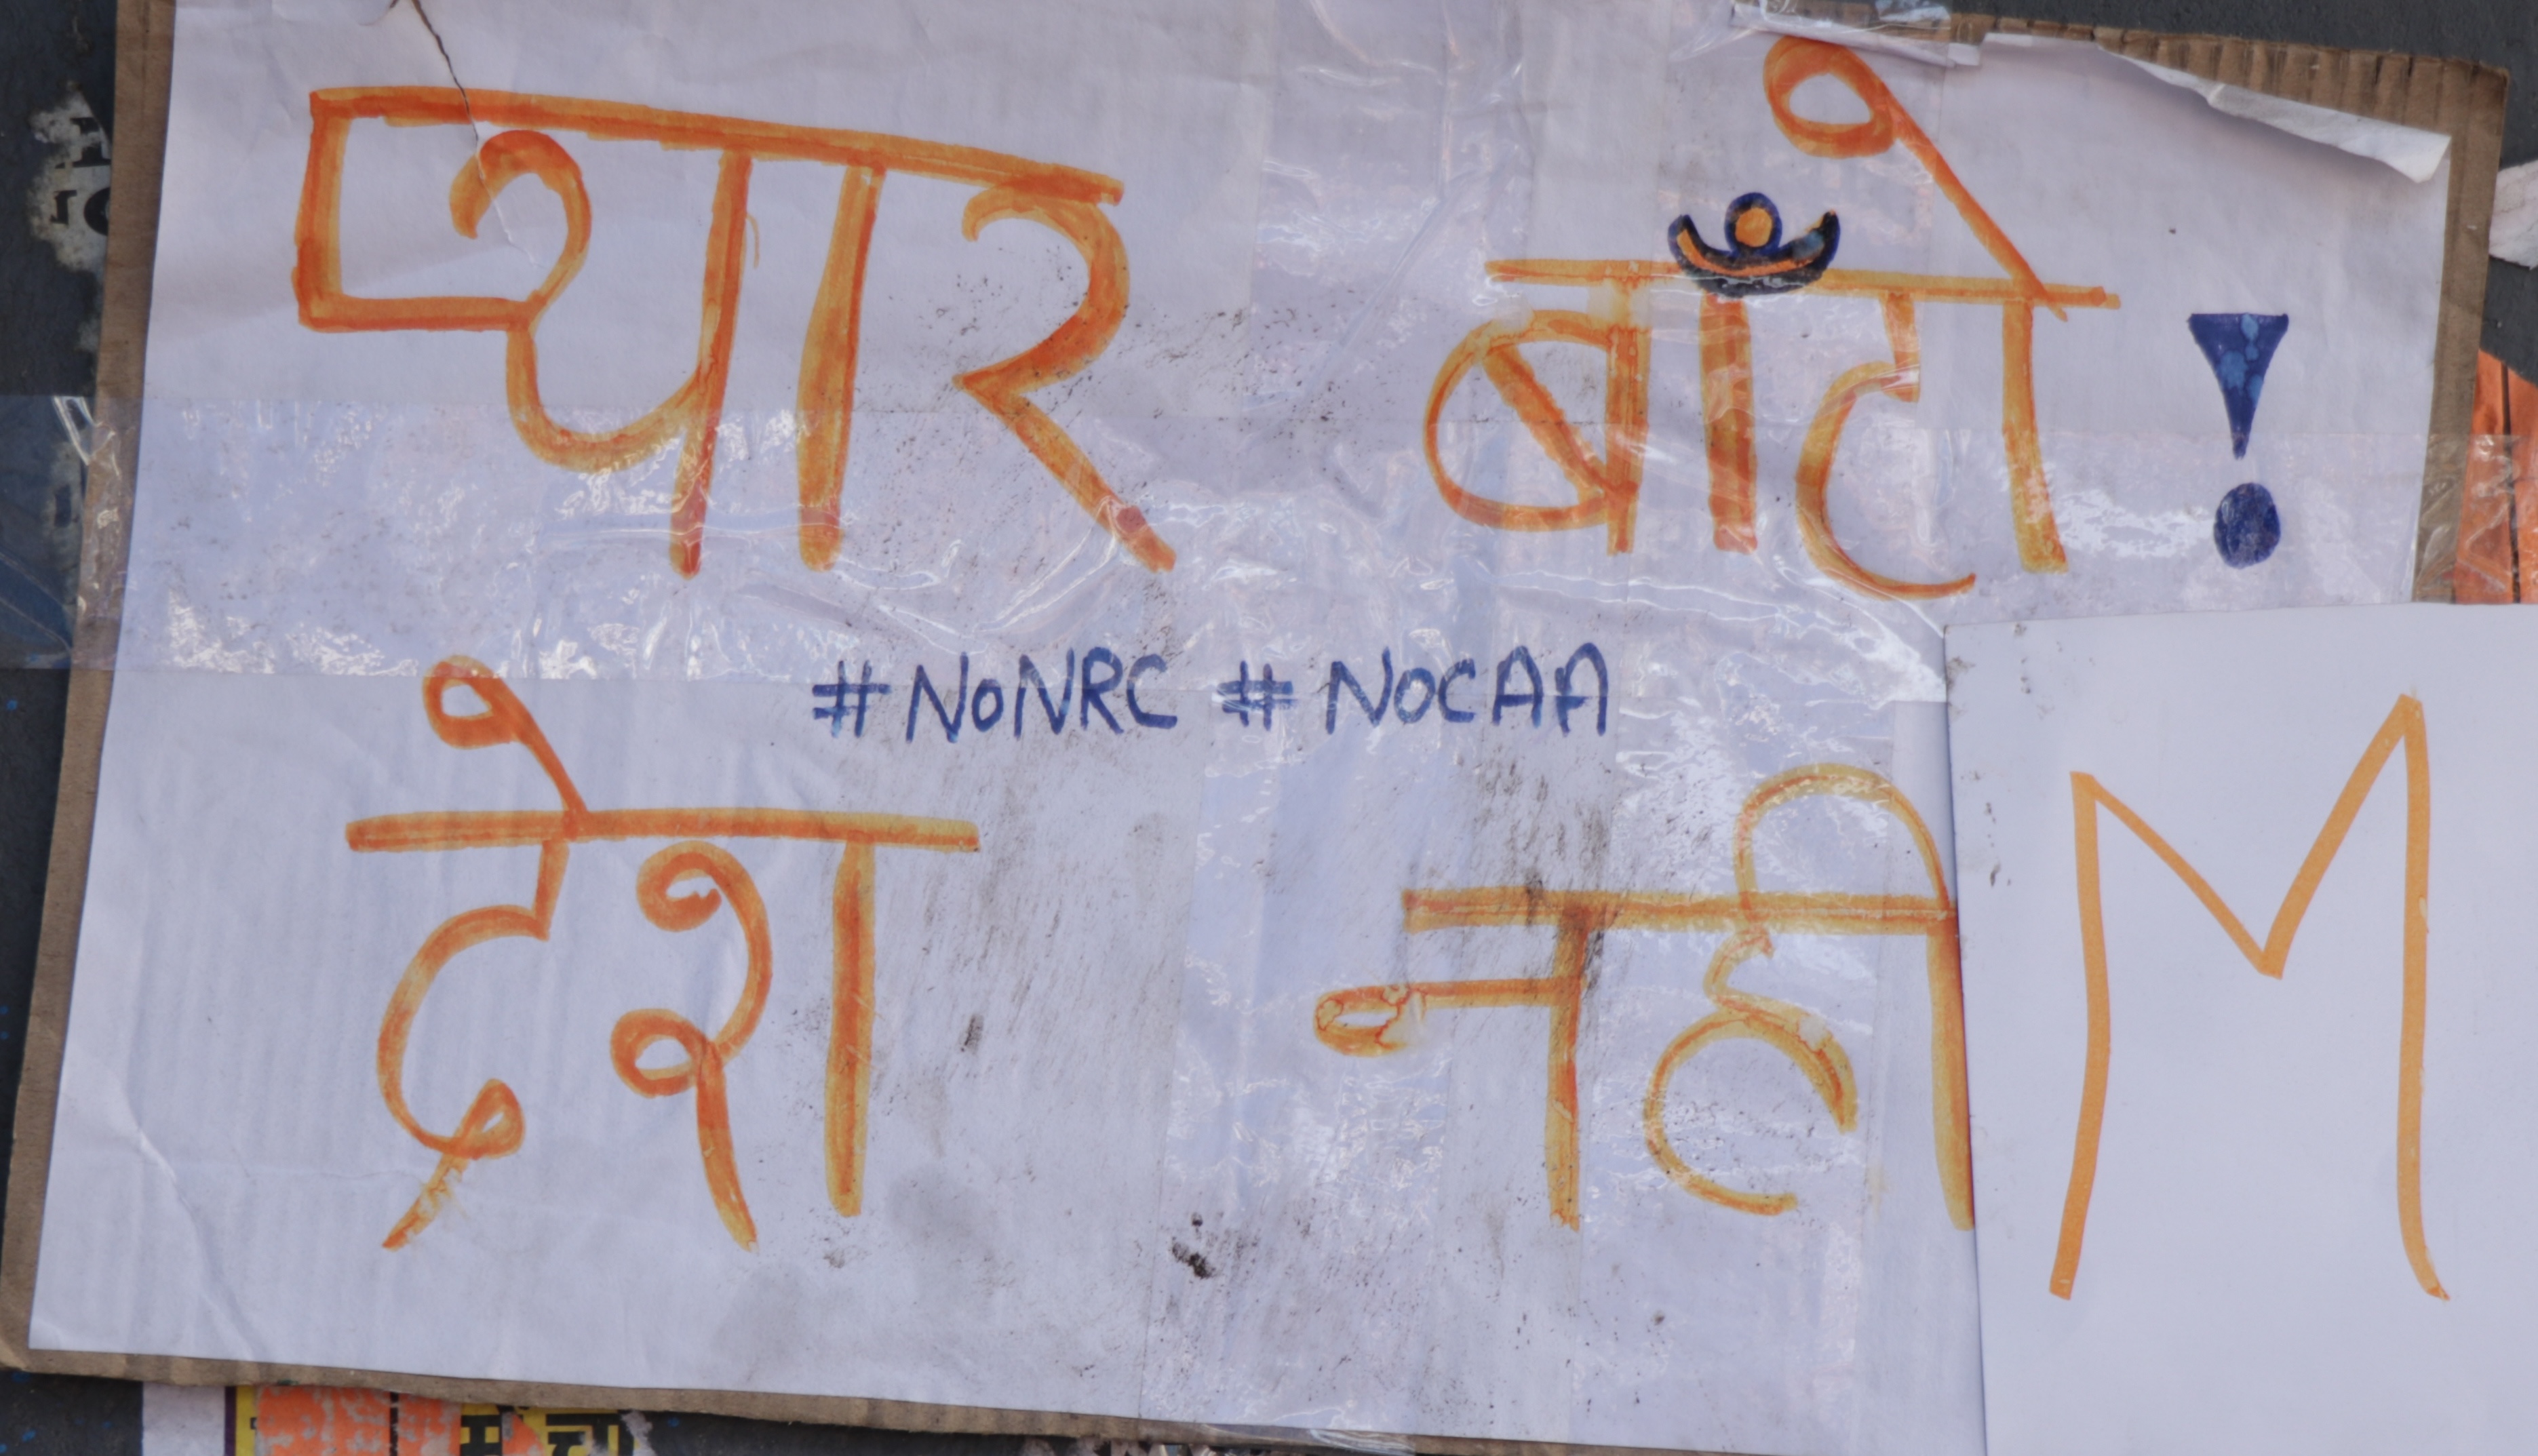 प्यार बाँटो !
#NoNRC #NOCAA
देश नही
M